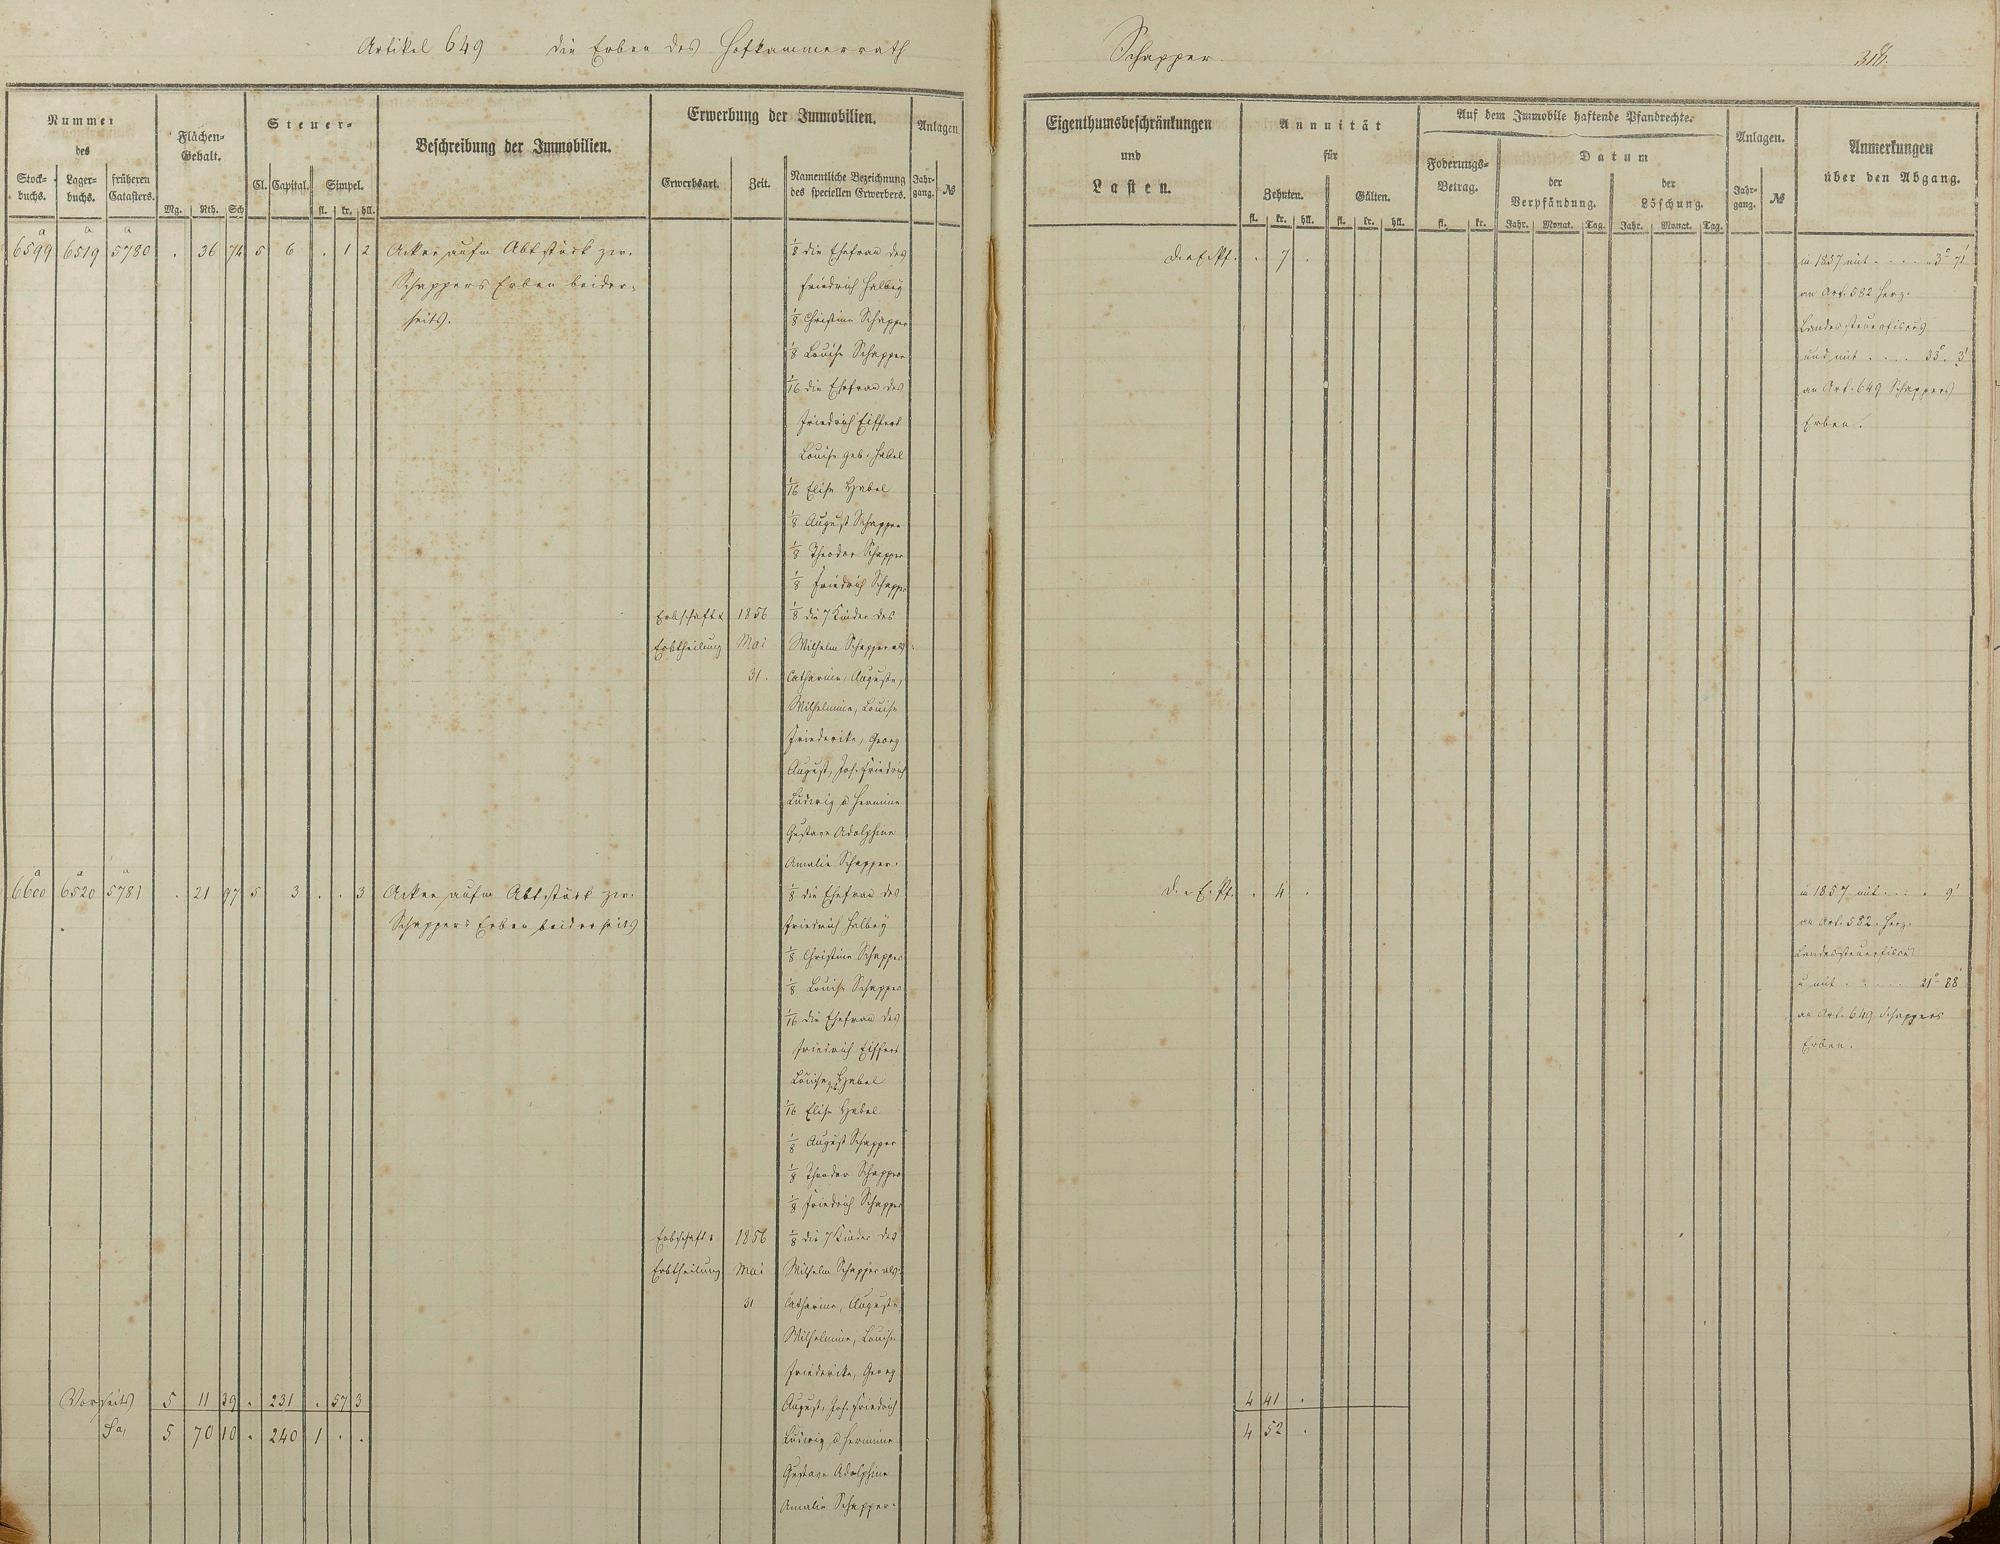 Artikel 649 die Erben des Hofkammerrath Schapper.
Nummer des
Stock-buchs.
Lager-buchs.
früheren Catasters.
Flächen-Gehalt.
Mg. Rth. Sch
Steuer-
Cl. Capital. Simpel.
fl. kr. hll.
Beschreibung der Immobilien.
Erwerbung der Immobilien.
Erwerbsart. Zeit.
Namentliche Bezeichnung
des speciellen Erwerbers.
Anlagen
Jahr-gang. №
Eigenthumsbeschränkungen
und
Lasten.
Annuität
für
Zehnten. Gülten.
fl. kr. hll. fl. kr. hll.
Auf dem Immobile haftende Pfandrechte.
Foderungs-
Betrag.
fl. kr.
Datum
der Verpfändung.
Jahr. Monat. Tag.
der Löschung.
Jahr. Monat. Tag.
Anlagen.
Jahr-gang. №
Anmerkungen
über den Abgang.
6599 a 6519 a 5780 a . 36 74 5 6 . 1 2
Acker aufm Abtstück zw.
Schappers Erben beider-
seits.
1/8 die Ehefrau des
Friedrich Halbey
1/8 Christine Schapper
1/8 Louise Schapper
1/16 die Ehefrau des
Friedrich Eiffert
Louise geb. Habel
1/16 Elise Habel
1/8 August Schapper
1/8 Theodor Schapper
1/8 Friedrich Schapper
Erbschaft & 1856 1/8 die 7 Kinder des
Erbtheilung Mai Wilhelm Schapper als:
31. Catharine, Auguste,
Wilhelmine, Louise
Friederike, Georg
August, Joh. Friedrich
Ludwig u Hermine
Gustave Adolphine
Amalie Schapper.
. 7 .
in 1857 mit . . . . 3° 71'
an Art. 582 Herz.
Landessteuerfiscus
und mit . . . . 33° 3'
an Art. 649 Schappers
Erben.
6600 a 6520 a 5781 a . 21 97 5 3 . . 3
Acker aufm Abtstück zw.
Schappers Erben beiderseits
1/8 die Ehefrau des
Friedrich Halbey
1/8 Christine Schapper
1/8 Louise Schapper
1/16 die Ehefrau des
Friedrich Eiffert
Louise geb. Habel
1/16 Elise Habel
1/8 August Schapper
1/8 Theodor Schapper
1/8 Friedrich Schapper
Erbschaft & 1856 1/8 die 7 Kinder des
Erbtheilung Mai Wilhelm Schapper als:
31 Catharine, Auguste,
Wilhelmine, Louise
Friederike, Georg
August, Joh. Friedrich
Ludwig u Hermine
Gustave Adolphine
Amalie Schapper.
. 4 .
in 1857 mit . . . 9'
an Art. 582. Herz.
Landessteuerfiscus
u mit . . . . 21° 88'
an Art. 649 Schappers
Erben.
Vorseits 5 11 39 . 231 . 57 3
Sa. 5 70 10 . 240 1 . .
4 41 .
4 52 .